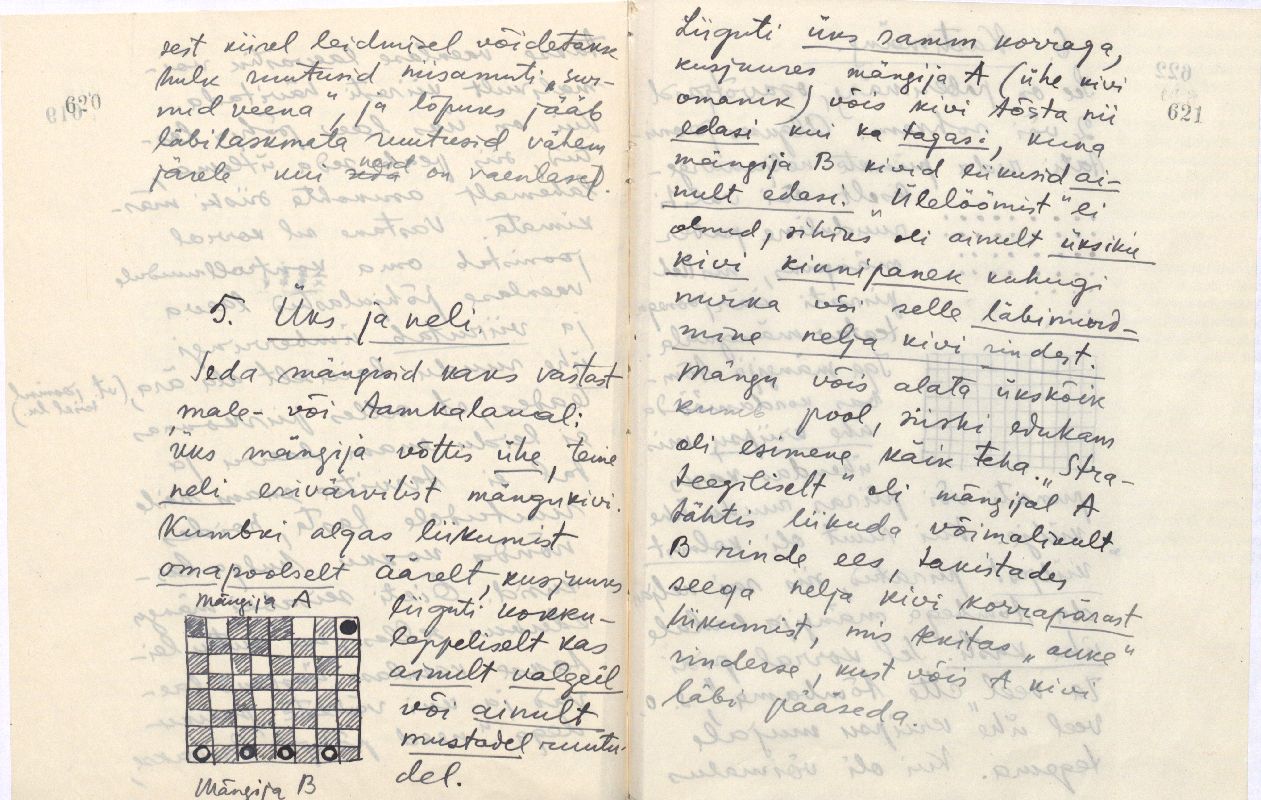 620
sest kiirel leidmisel võidetakse
hulk ruutusid niisamuti „sur-
nud veena", ja lõpuks jääb
läbilaskmata ruutusid vähem
järele kui neid on vaenlasel.
5. Üks ja neli.
Seda mängisid kaks vastast
male- või kamkalaual:
üks mängija võttis ühe, teine
neli erivärvilist mängukivi.
Kumbki algas liikumist
omapoolselt äärelt, kusjuures
liiguti kokku-
leppeliselt kas
ainult valgeil
või ainult
mustadel ruutu-
del.
Mängija A
Mängija B
621
Liiguti üks samm korraga,
kusjuures mängija A (ühe kivi
omanik) võis kivi tõsta nii
edasi kui ka tagasi, kuna
mängija B kivid liikusid ai-
nult edasi. „Ülelöömist" ei
olnud, sihiks oli ainult üksiku
kivi kinnipanek kuhugi
nurka või selle läbimurd-
mine nelja kivi rindest.
Mängu võis alata ükskõik
kumb pool, siiski edukam
oli esimene käik teha. „Stra-
teegiliselt" oli mängijal A
tähtis liikuda võimalikult
B rinde ees, takistades
seega nelja kivi korrapärast
liikumist, mis tekitas „auke"
rindesse, kust võis A kivi
läbi pääseda.